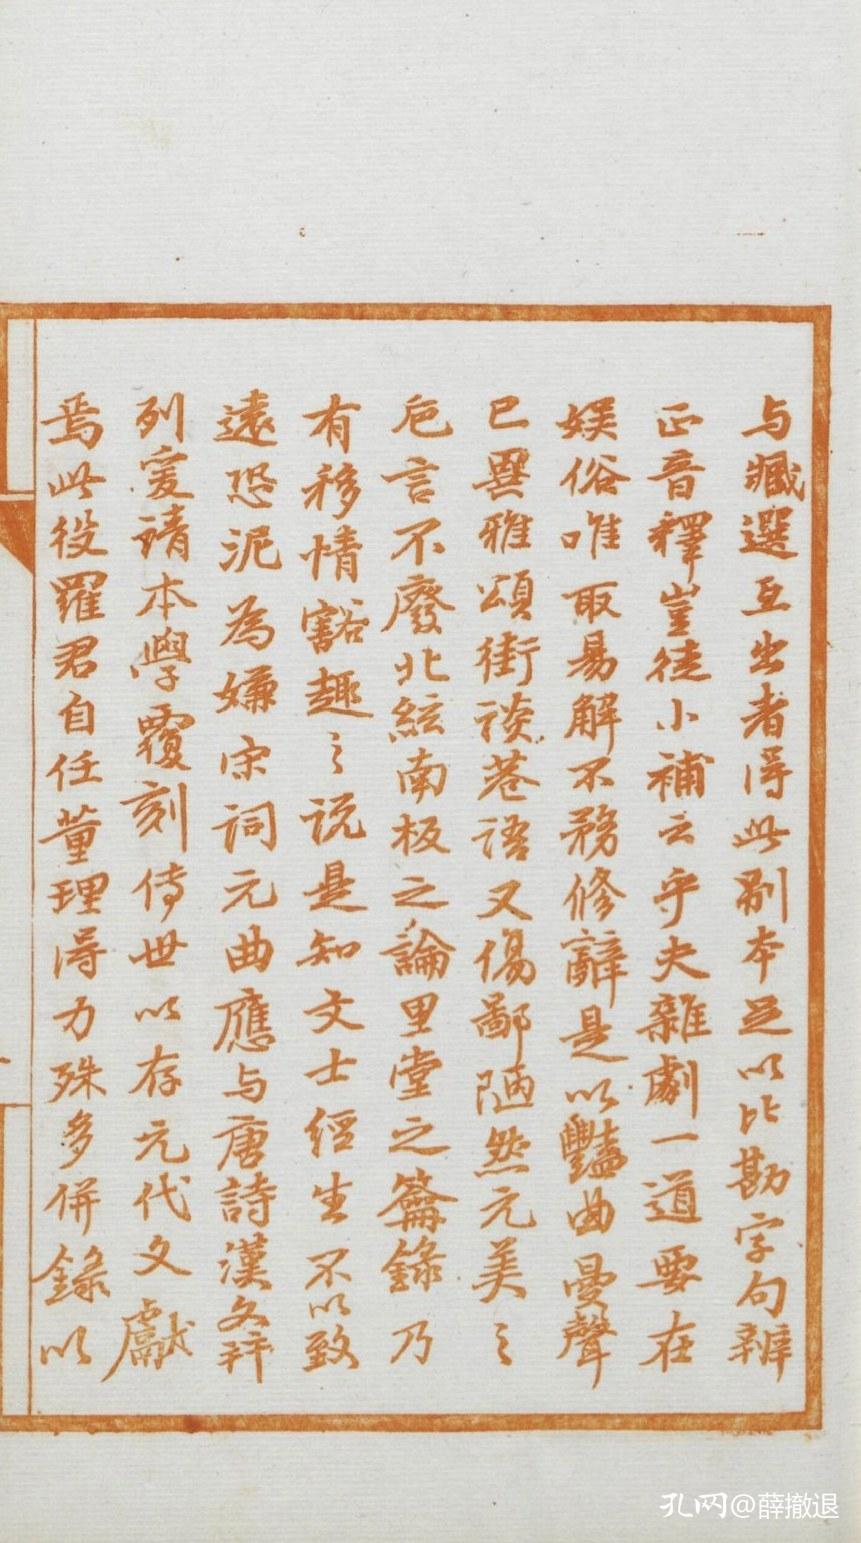 与臧選互出者得此刷本足以比勘字句辨
正音釋豈徒小補云乎夫雜劇一道要在
娱俗唯取易解不務修辭是以豔曲曼聲
已異雅頌街談巷語又傷鄙陋然元美之
卮言不廢北絃南板之論里堂之籥錄乃
有移情豁趣之说是知文士經生不以致
遠恐泥為嫌宋詞元曲應与唐詩漢文并
列爰請本學覆刻傳世以存元代文獻
焉此役羅君自任董理得力殊多併錄以
孔网@薛撤退